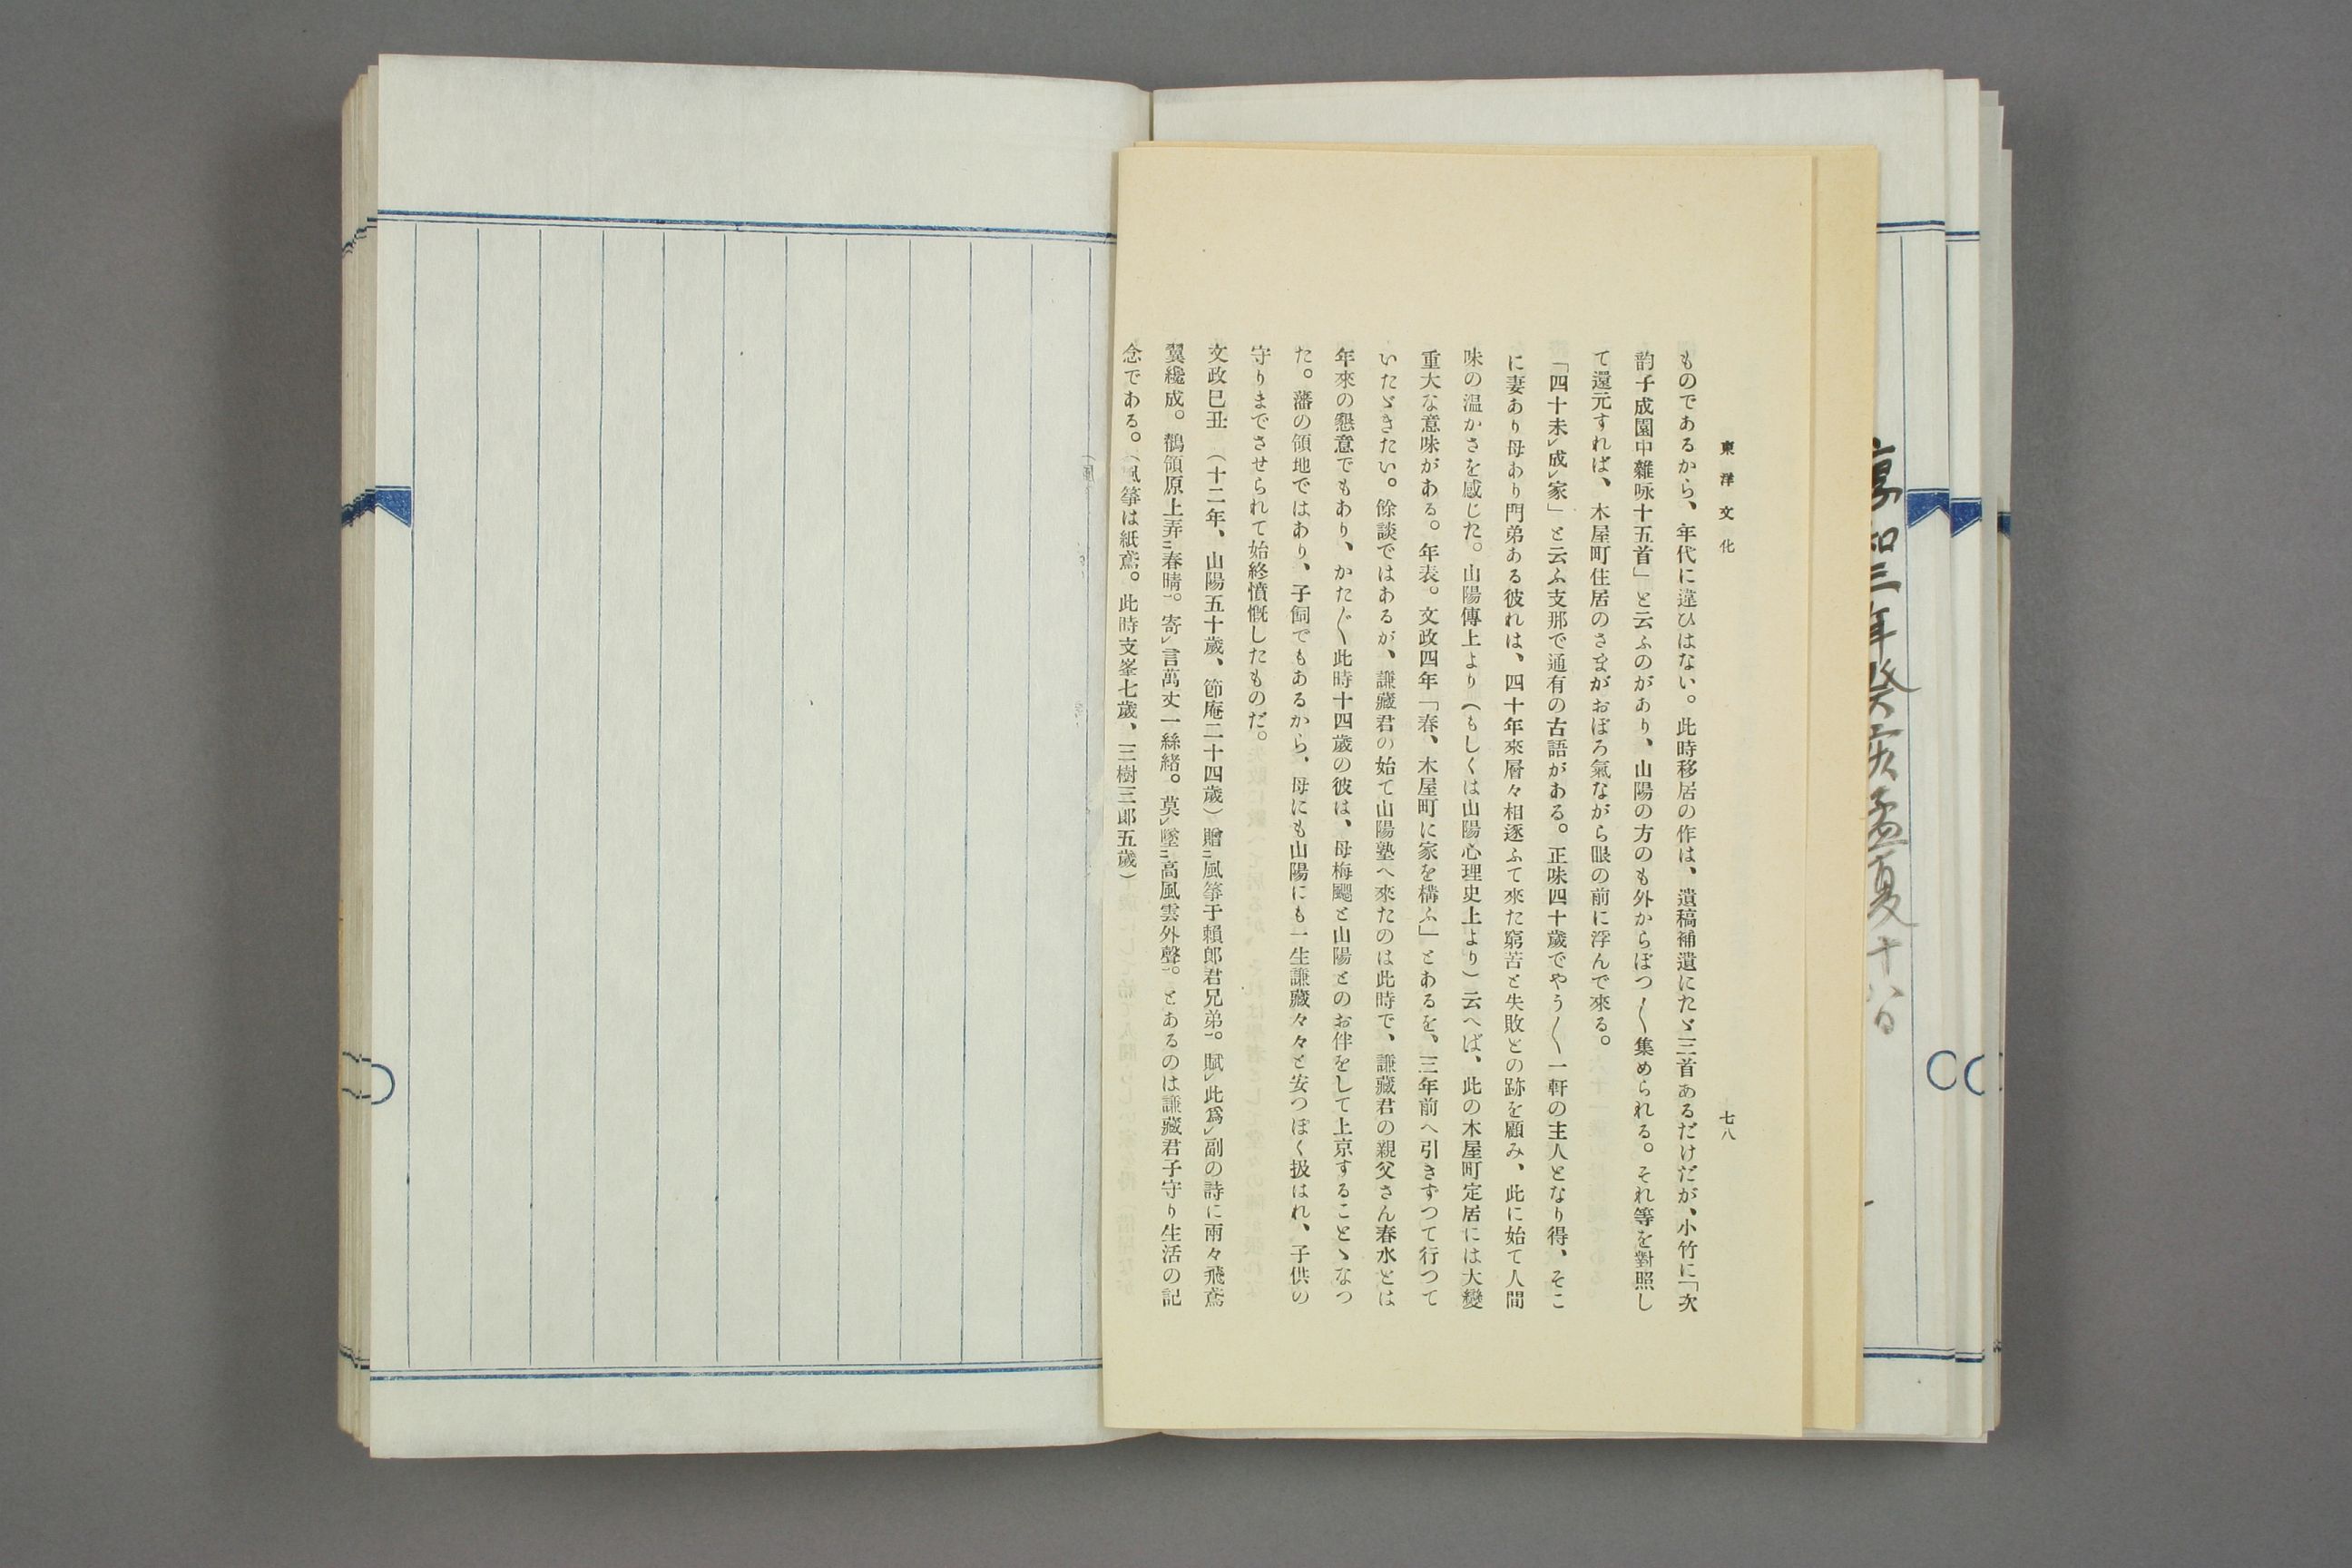 東洋文化
七八
ものであるから、年代に違ひはない。此時移居の作は、遺稿補遺にたゞ三首あるだけだが、小竹に「次
韵子成園中雜咏十五首」と云ふのがあり、山陽の方のも外からぼつ〱集められる。それ等を對照し
て還元すれば、木屋町住居のさまがおぼろ氣ながら眼の前に浮んで來る。
「四十未㆑成㆑家」と云ふ支那で通有の古語がある。正味四十歲でやう〱一軒の主人となり得、そこ
に妻あり母あり門弟ある彼れは、四十年來層々相逐ふて來た窮苦と失敗との跡を顧み、此に始て人間
味の温かさを感じた。山陽傳上より（もしくは山陽心理史上より）云へば、此の木屋町定居には大變
重大な意味がある。年表。文政四年「春、木屋町に家を構ふ」とあるを、三年前へ引きずつて行つて
いたゞきたい。餘談ではあるが、謙藏君の始て山陽塾へ來たのは此時で、謙藏君の親父さん春水とは
年來の懇意でもあり、かた〲此時十四歲の彼は、母梅颸と山陽とのお伴をして上京することゝなつ
た。藩の領地ではあり、子飼でもあるから、母にも山陽にも一生謙藏々々と安つぽく扱はれ、子供の
守りまでさせられて始終憤慨したものだ。
文政己丑　（十二年、山陽五十歲、節庵二十四歲）贈㆓風箏于賴郎君兄弟㆒。賦㆑此爲㆑副の詩に兩々飛鳶
翼纔成。鶺領原上弄㆓春晴㆒。寄㆑言萬丈一絲緒。莫㆑墜㆓高風雲外聲㆒。とあるのは謙藏君子守り生活の記
念である。（風箏は紙鳶。此時支峯七歲、三樹三郎五歲）
三年癸亥孟夏十八日